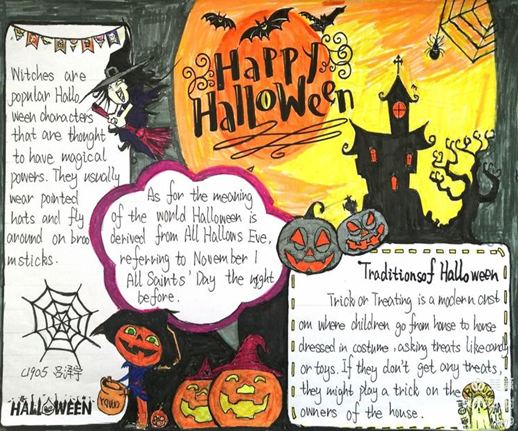 Happy
Halloween
Witches are
popular Hallo
ween characters
that are thought
to have magical
powers. They usually
wear pointed
hats and fly
around on broo
msticks.
As for the meaning
of the world Halloween is
derived from All Hallows Eve,
referring to November 1
All Saints' Day the night
before.
Traditions of Halloween
Trick or Treating is a modern cust
om where children go from house to house
dressed in costume, asking treats like candy
or toys. If they don't get any treats,
they might play a trick on the
owners of the house.
HALLOWEEN
BOO